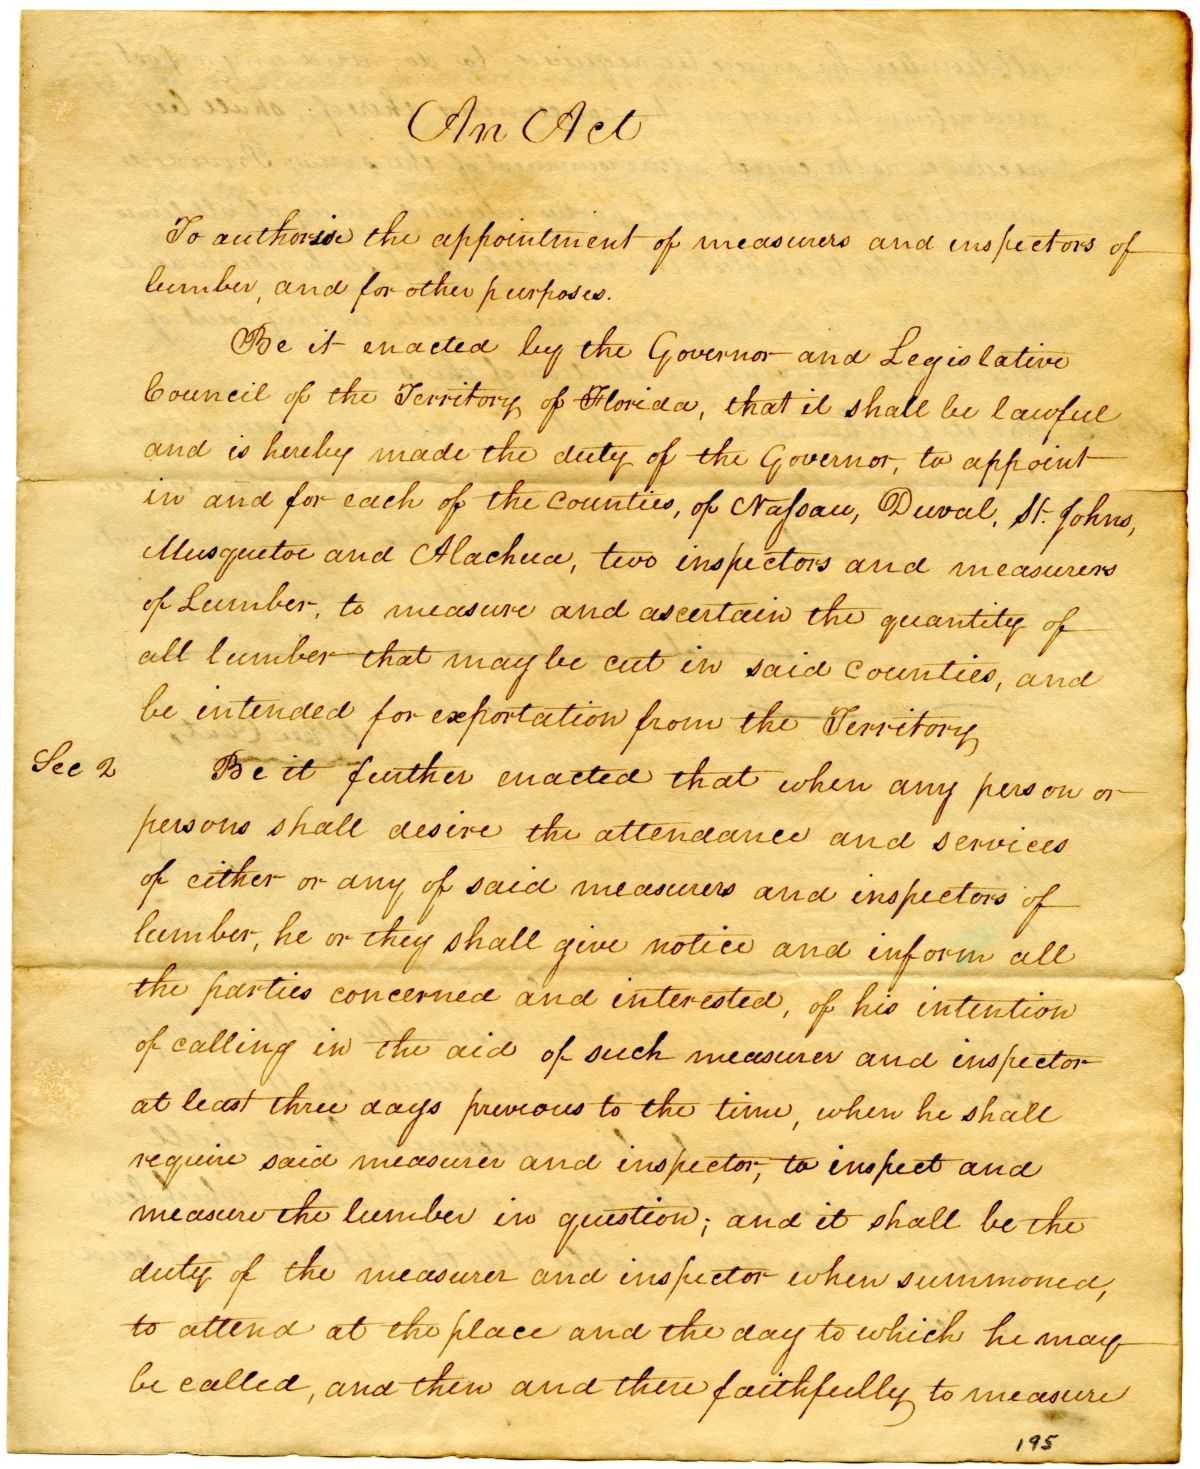 An Act
To authorise the appointment of measurers and inspectors of
lumber, and for other purposes.
Be it enacted by the Governor and Legislative
Council of the Territory of Florida, that it shall be lawful
and is hereby made the duty of the Governor, to appoint
in and for each of the counties, of Nassau, Duval, St. Johns,
Musquetoe and Alachua, two inspectors and measurers
of Lumber, to measure and ascertain the quantity of
all lumber that may be cut in said counties, and
be intended for exportation from the Territory
Sec 2 Be it further enacted that when any person or
persons shall desire the attendance and services
of either or any of said measurers and inspectors of
lumber, he or they shall give notice and inform all
the parties concerned and interested, of his intention
of calling in the aid of such measurer and inspector
at least three days previous to the time, when he shall
require said measurer and inspector, to inspect and
measure the lumber in question; and it shall be the
duty of the measurer and inspector when summoned,
to attend at the place and the day to which he may
be called, and then and there faithfully to measure
195